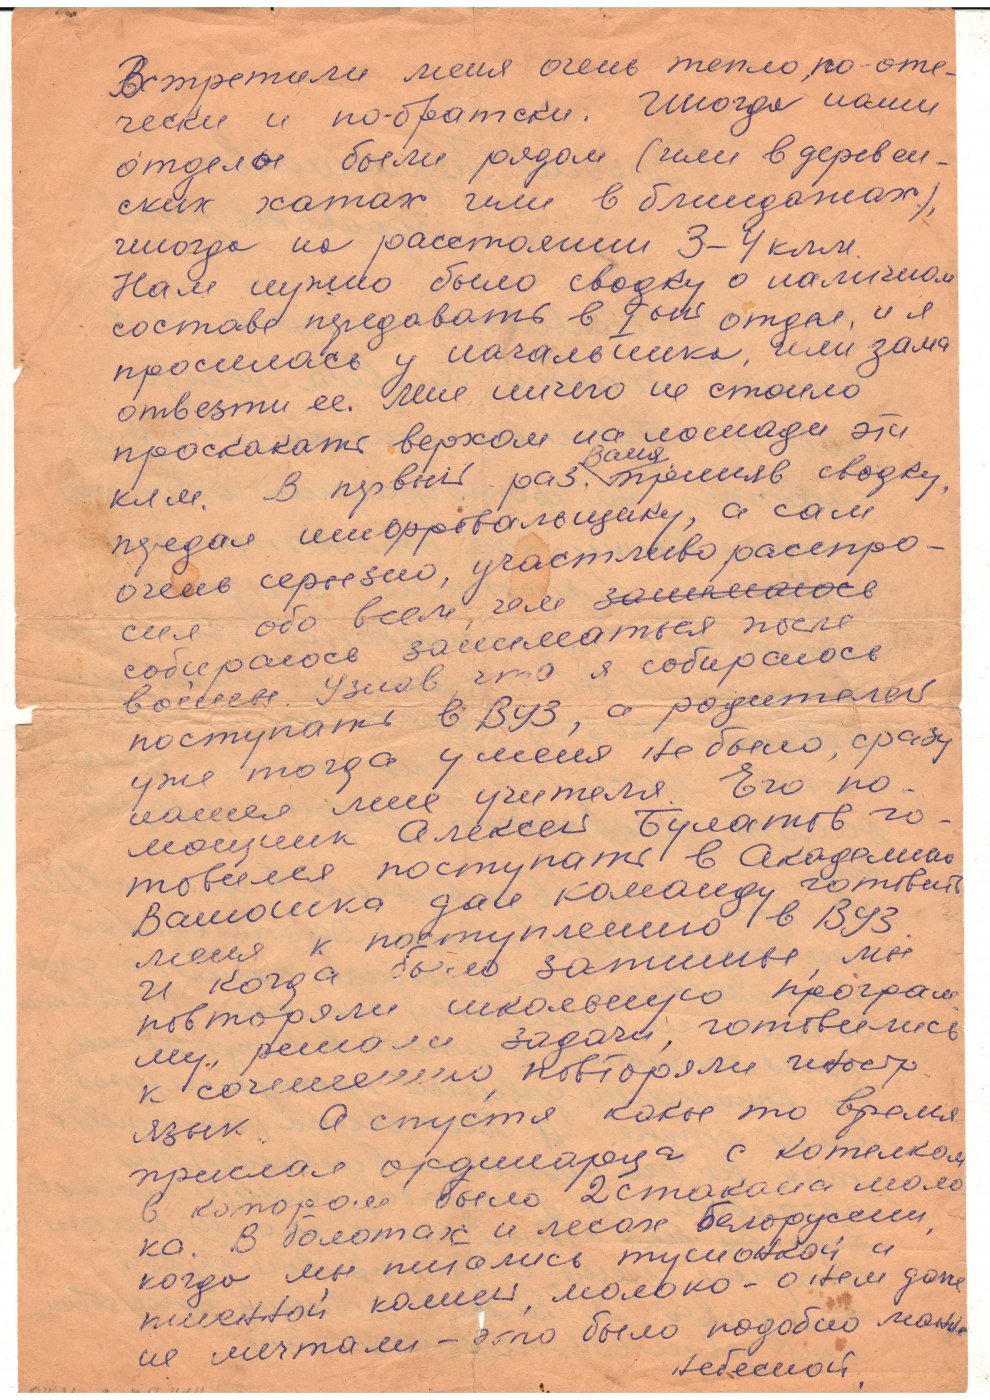 Встретили меня очень тепло, по-оте-
чески и по-братски. Иногда наши
отделы были рядом (или в деревен-
ских хатах или в блиндажах),
иногда на расстоянии 3-4 клм.
Нам нужно было сводку о наличном
составе передавать в I ый отдел, и я
просилась у начальника, или зама
отвезти ее. Мне ничего не стоило
проскакать верхом на лошади эти
клм. В первый раз. Ваня приняв сводку,
передал шифровальщику, а сам
очень серьезно, участливо расспро-
сил обо всем, чем занималось
собиралось заниматься после
войны. Узнав, что я собиралось
поступать в ВУЗ, а родителей
уже тогда у меня не было, сразу
нашел мне учителя. Его по-
мощник Алексей Булатов го-
товился поступать в Академию
Ванюшка дал команду готовить
меня к поступлению в ВУЗ.
И когда было затишье, мы
повторяли школьную програм
му, решали задачи, готовились
к сочинению, повторяли иностр.
язык. А спустя какое то время
прислал ординарца с котелком
в котором было 2 стакана моло
ка. В болотах и лесах Белоруссии,
когда мы питались тушонкой и
пшенной кашей, молоко - о нем даже
не мечтали - это было подобно манне
небесной.